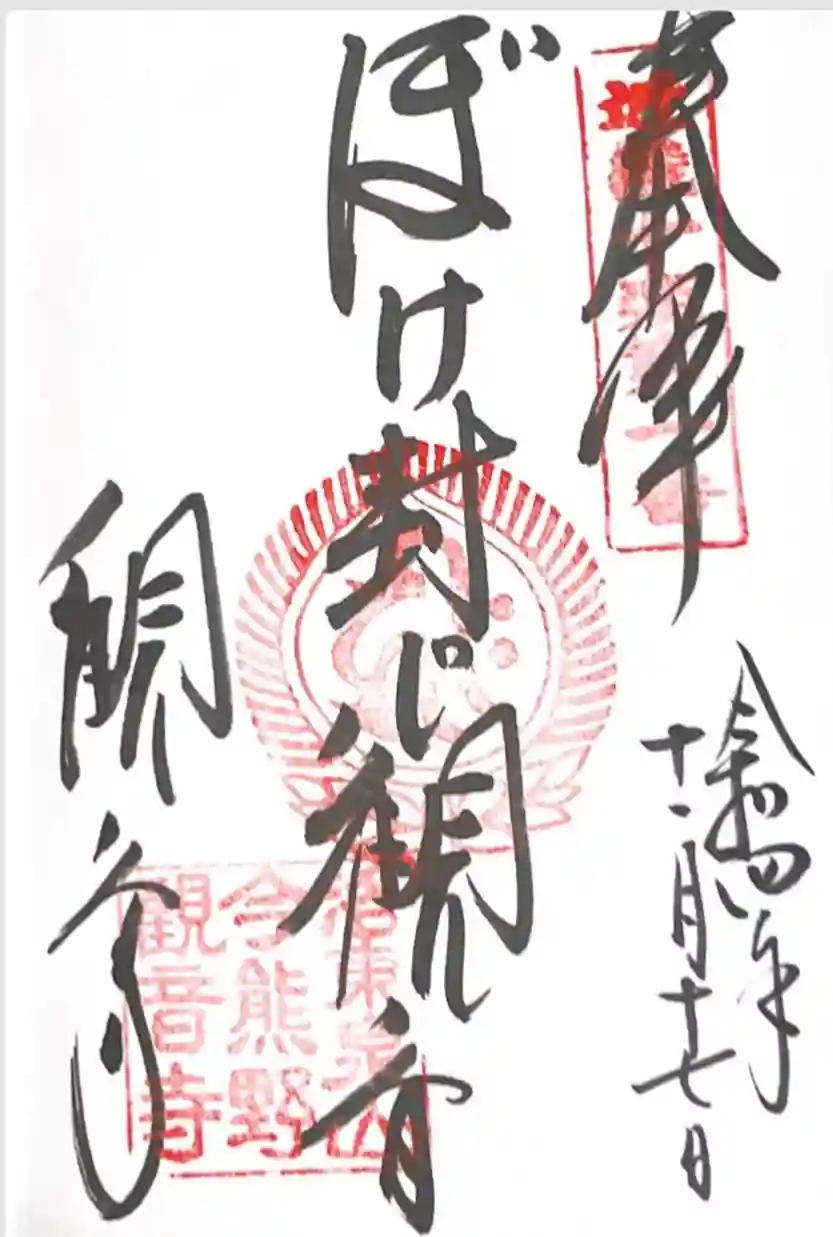 奉拝
令和四年
十一月十七日
ぼけ封じ観音
観音寺
洛東泉山
今熊野
観音寺